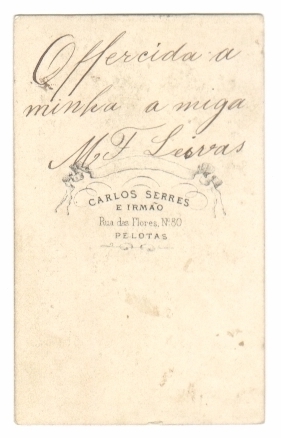 Offercida a
minha a miga
M F Leivas
CARLOS SERRES
E IRMÃO
Rua das Flores, Nº 80
PELOTAS